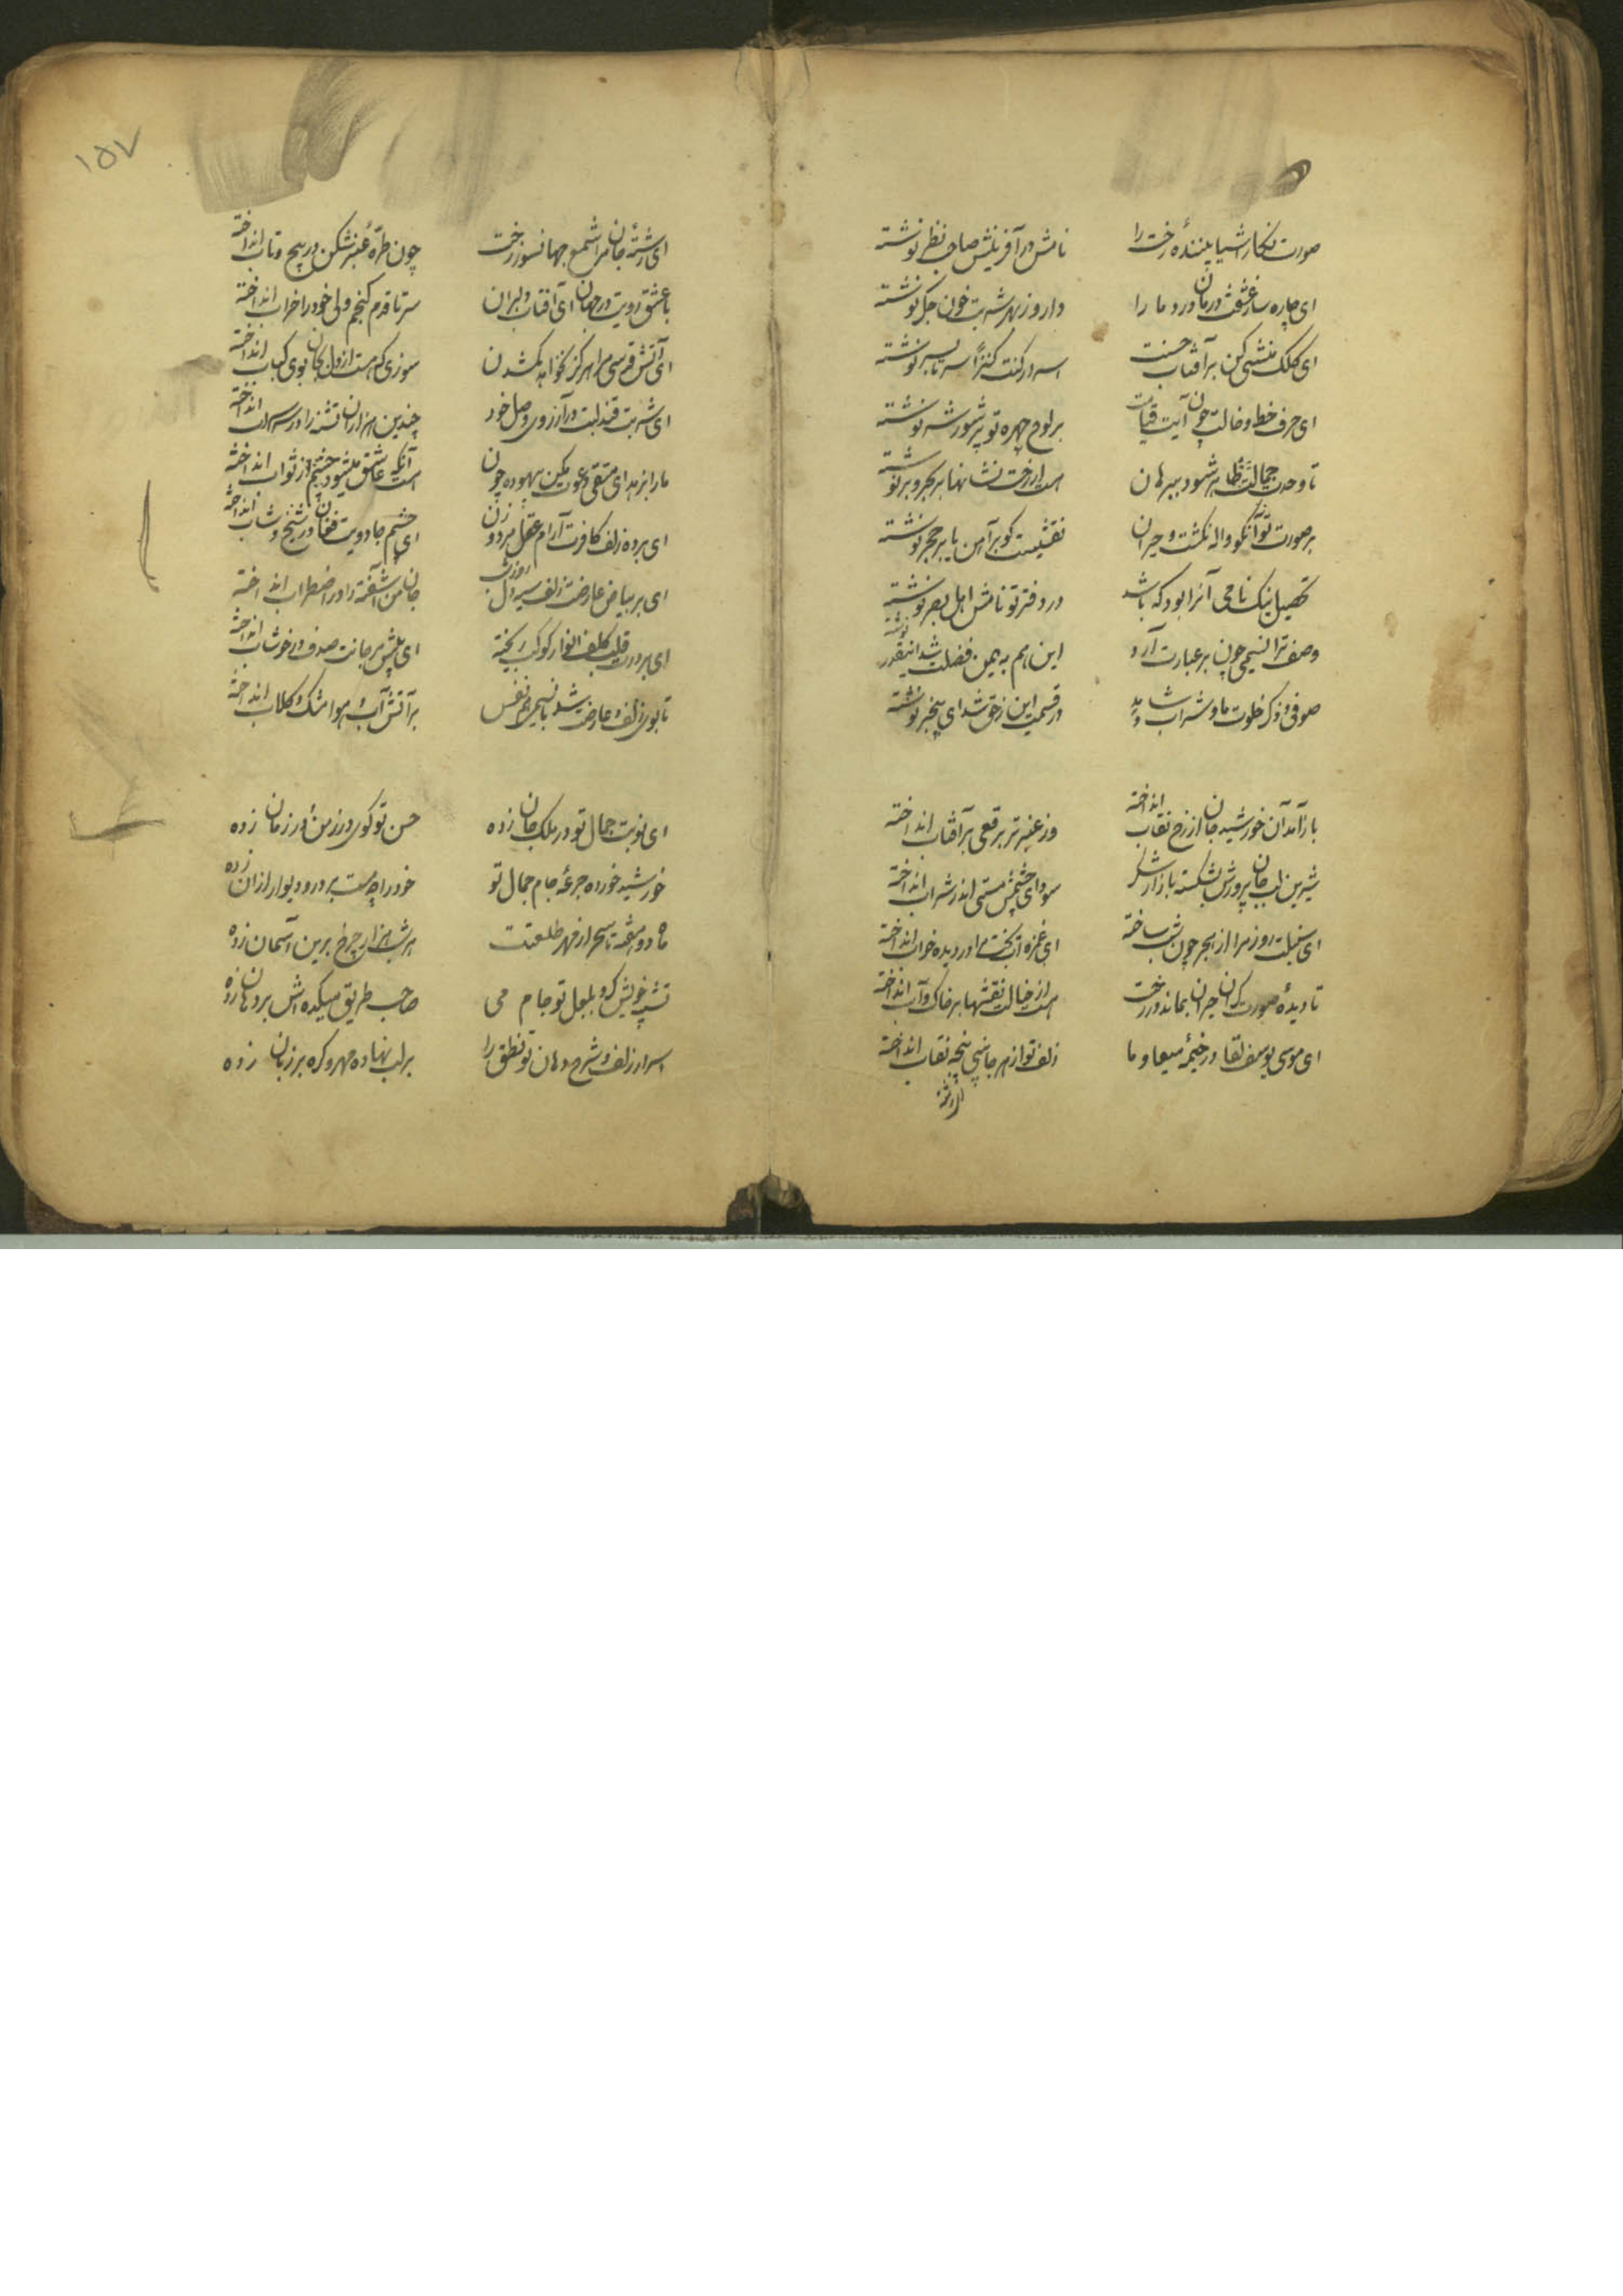 صورت نگار اشیا بیننده رخت را نامش در آفرینش صاحب نظر نوشته
ای چاره ساز عشقت درمان درد ما را دارو ز زهر شربت خون جگر نوشته
ای کلک منشی کن بر آفتاب حسنت اسرار کنت کنزا سر تا بسر نوشته
ای حرف خط و خالت چون آیت قیامت بر لوح چهره تو پر شور و شر نوشته
تا وحدت جمالت ظاهر شود ببرهان است از رخت نشانها بر بحر و بر نوشته
بر صورت تو آنکو واله نگشت و حیران نقشیست کو بر آهن یا بر حجر نوشته
تحصیل نیک نامی آنرا بود که باشد در دفتر تو نامش اهل بصر نوشته
وصف ترا نسیمی چون بر عبارت آرد این هم به یمن فضلت شد اینقدر نوشته
صوفی و ذکر خلوت ما و شراب و شاهد در قسمت این ز حق شد ای بیخبر نوشته
باز آمد آن خورشید جان از رخ نقاب انداخته وز عنبر تر برقعی بر آفتاب انداخته
شیرین لب جان پرورش بشکسته بازار شکر سودای چشمش مستی اندر شراب انداخته
ای سنبلت روز مرا از هجر چون شب ساخته ای غمزه ات بخت مرا در دیده خواب انداخته
تا دیده صورت گران حیران بماند در رخت است از خیالت نقشها بر خاک و آب انداخته
ای موسی یوسف لقا در خیمه میعاد ما زلف تو از هر جانبی پنجه نقاب انداخته
ای رشته
۱۵۷
ای رشته جان مرا شمع جهانسوز رخت چون طره عنبر شکن در پیچ و تاب انداخته
با عشق رویت در جهان ای آفتاب دلبران سر تا قدم گنجم ولی خود را خراب انداخته
ای آتش قدسی مرا هرگز نخواهد کشتن سوزی که هست از دل بجان بوی کباب انداخته
ای شربت قند لبت در آرزوی وصل خود چندین هزاران تشنه را در سراب انداخته
ما را بزهد ای متقی دعوت مکن بیهوده چون آنکه عاشق میشود چشم از ثواب انداخته
ای برده زلف کافرت آرام عقل مرد و زن ای چشم جادویت فغان در شیخ و شاب انداخته
ای بر بیاض عارضت زلف سیه دل روز و شب جان من آشفته را در اضطراب انداخته
ای بر درت قلب کلف انوار کوکب ریخته ای پیش مرجانت صدف در خوشاب انداخته
تا بوی زلف و عارضت شد با نسیمی هم نفس بر آتش آب و هوا مشک و گلاب انداخته
ای نوبت جمال تو در ملک جان زده حسن تو کوس در زمن و در زمان زده
خورشید خورده جرعه جام جمال تو خود را چو مست بر در و دیوار از آن زده
ماه دو هفته تا سحر از مهر طلعتت هر شب هزار چرخ برین آسمان زده
تشبیه خویش کرد بلعل تو جام می صاحب طریق میکده اش بر دهان زده
اسرار زلف و شرح دهان تو نطق را بر لب نهاده مهر و گره بر زبان زده